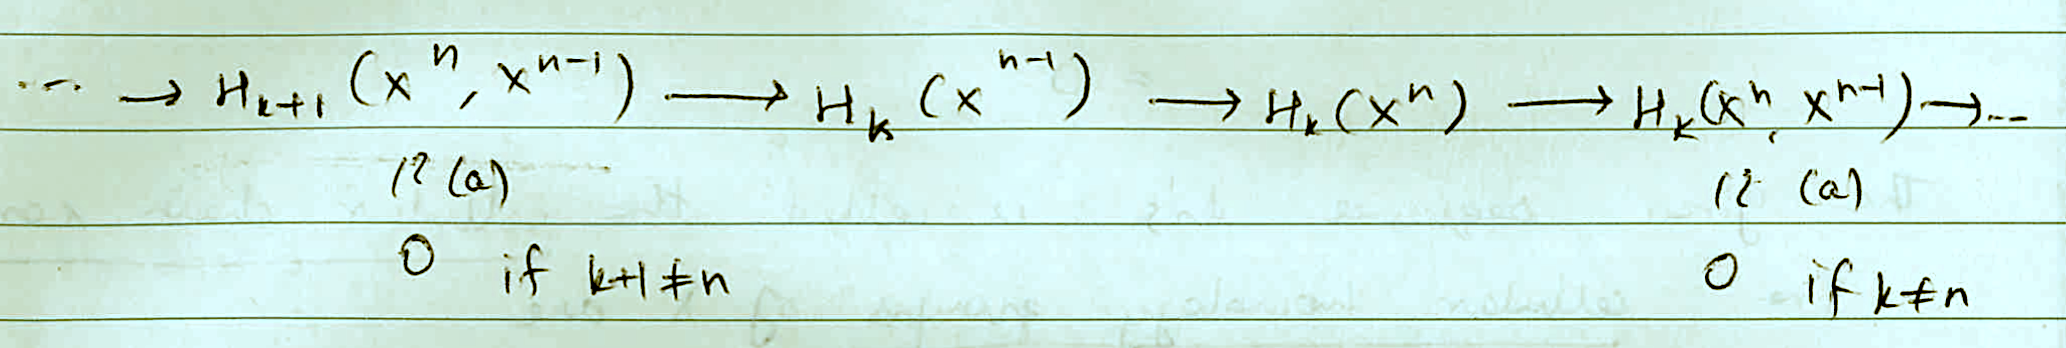 ... → H_{k+1} (X^n, X^{n-1}) → H_k (X^{n-1}) → H_k (X^n) → H_k (X^n, X^{n-1}) → ...
≀≀ (a) ≀≀ (a)
0 if k+1≠n 0 if k≠n